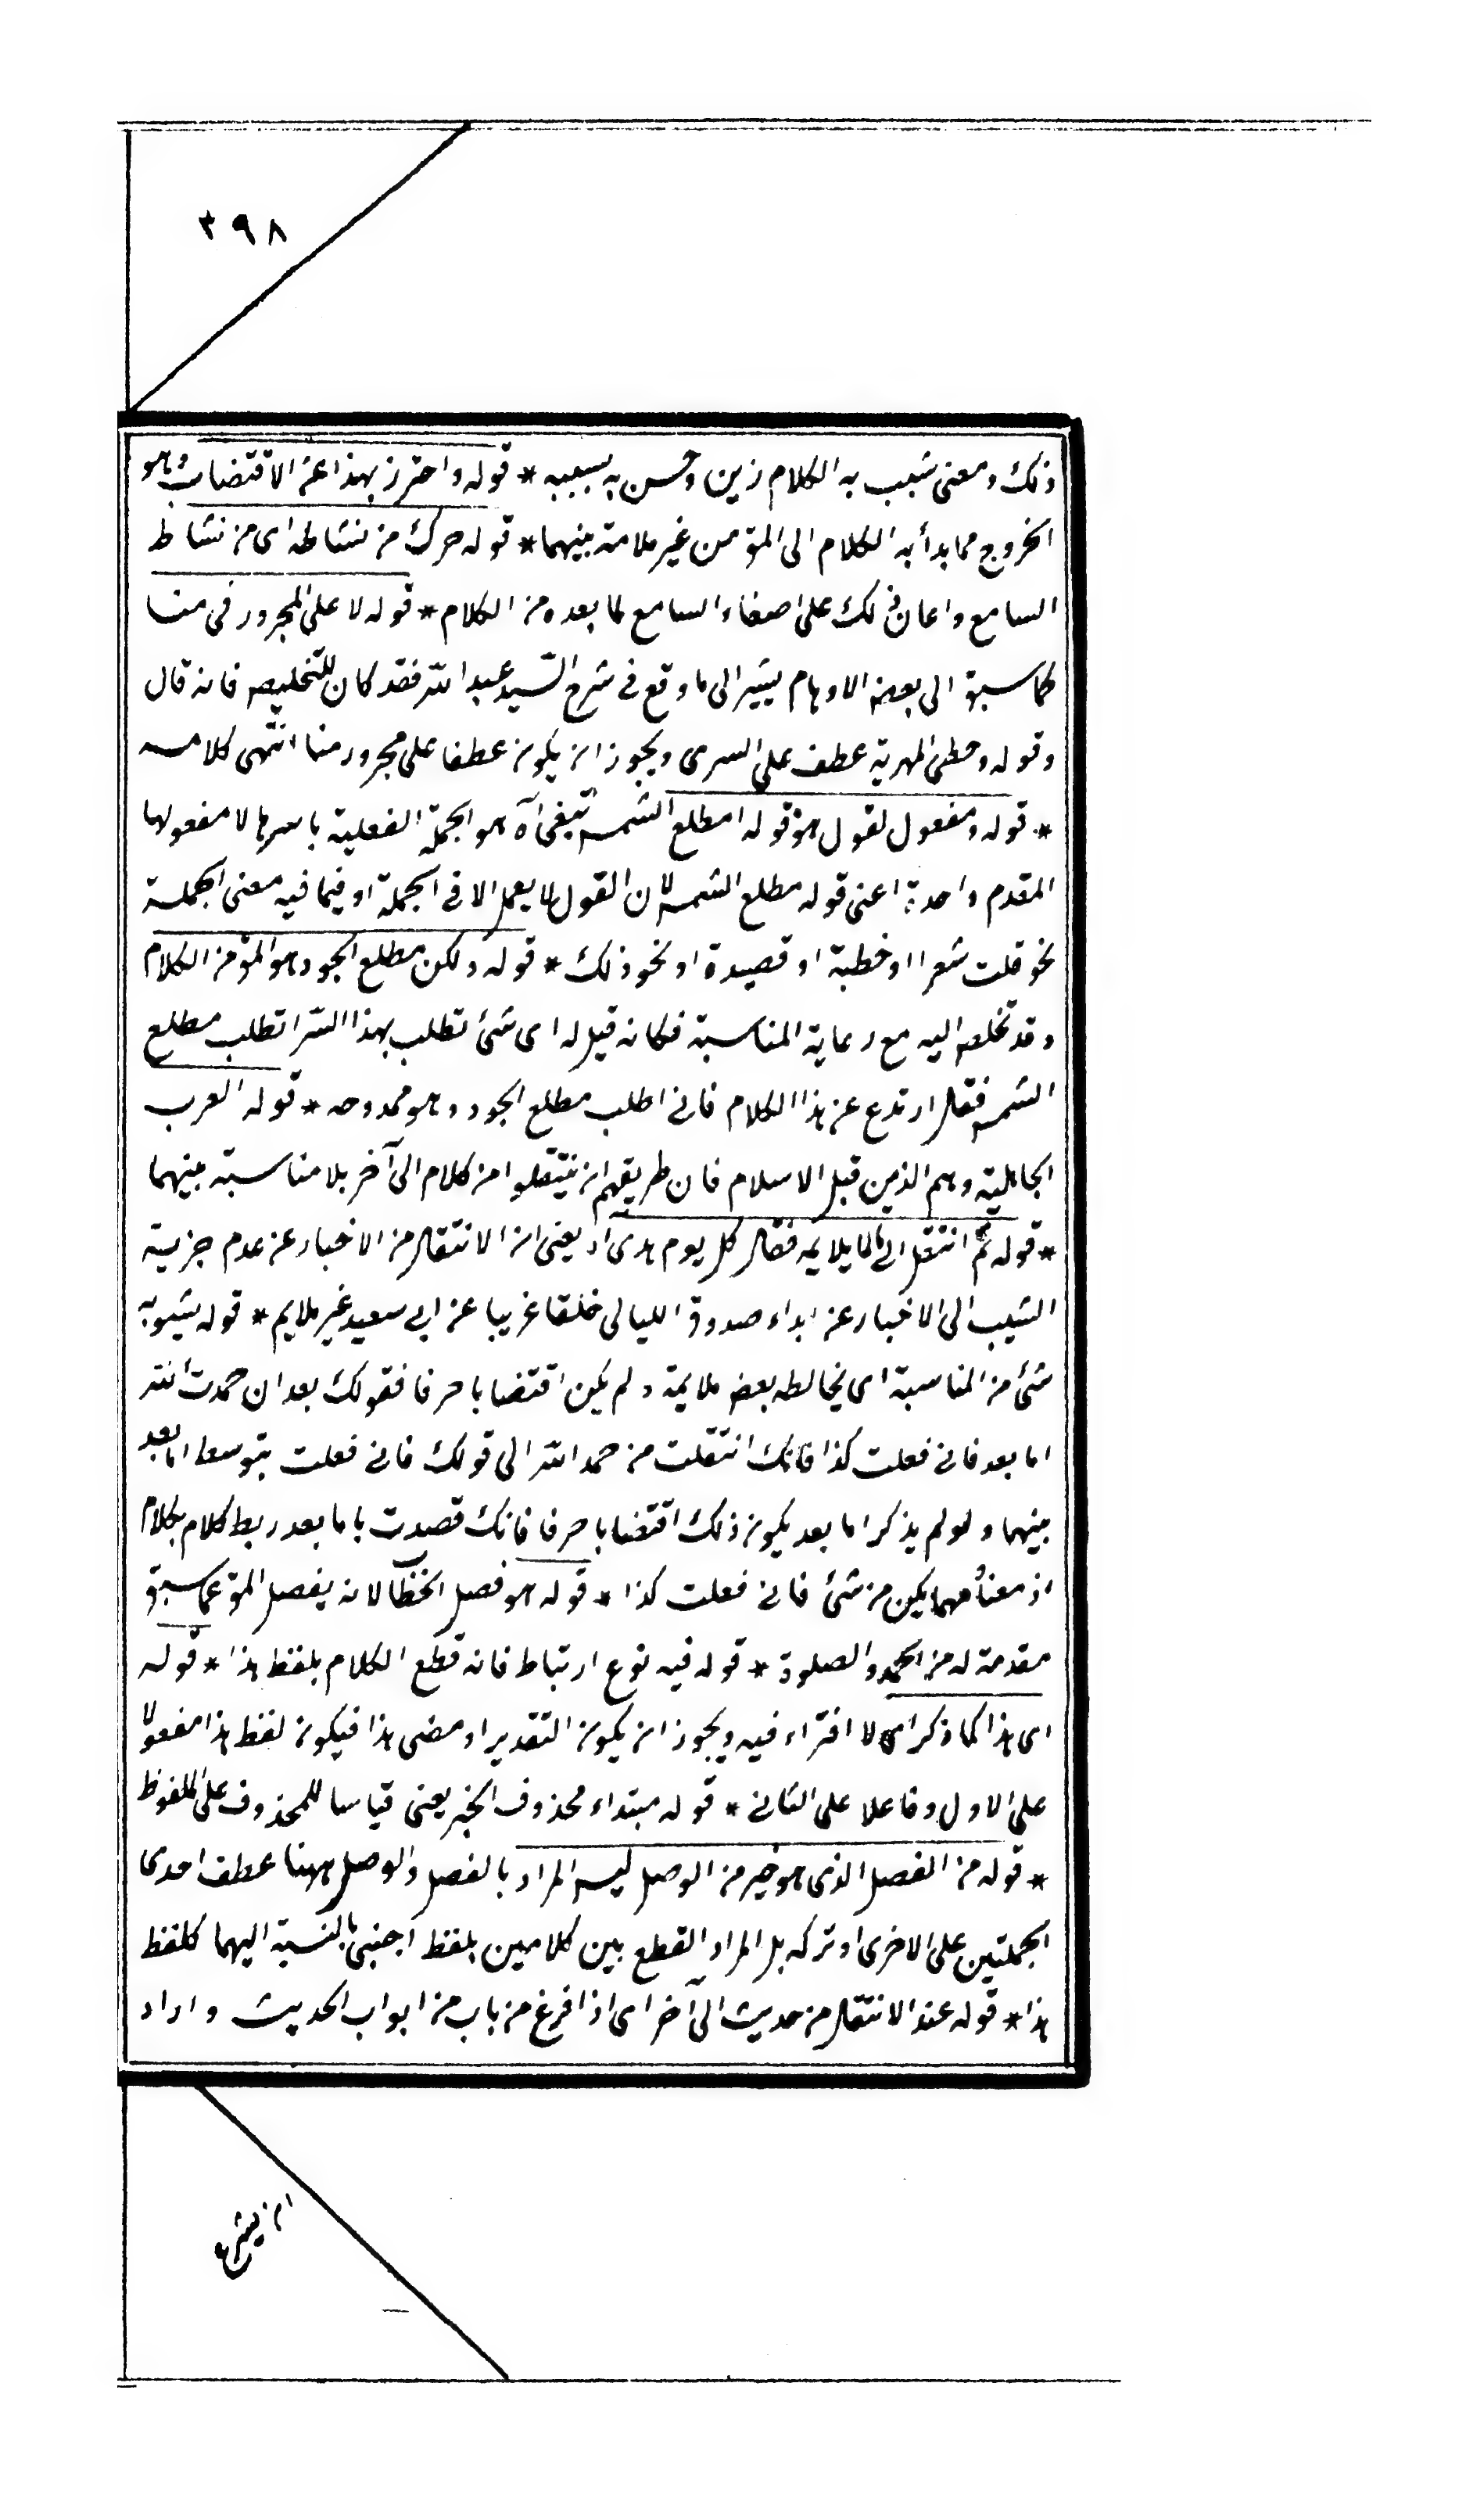 ٣٩٨
ذلك ومعنى شبب به الكلام زين وحسن به بسببه * قوله واحترز بهذا عن الاقتضاب وهو
الخروج مما بدأ به الكلام الى المق من غير ملامة بينهما * قوله حرك من نشاطه اى من نشاط
السامع واعان ذلك على اصغاء السامع لما بعده من الكلام * قوله لا على المجرور فى منا
كما سبق الى بعض الاوهام يشير الى ما وقع فى شرح السيد عبد الله فقد كان للتخليص فانه قال
وقوله وخطى المهرية عطف على السرى ويجوز ان يكون عطفا على مجرور منا انتهى كلامه
* قوله ومفعول لقول هو قوله امطلع الشمس تبغى آه هو الجملة الفعلية باسرها لا مفعولها
المقدم واحدة اعنى قوله مطلع الشمس لان القول لا يعمل الا فى الجملة او فيما فيه معنى الجملة
نحو قلت شعرا او خطبة او قصيدة او نحو ذلك * قوله ولكن مطلع الجود هو المق من الكلام
وقد تخلص اليه مع رعاية المناسبة فكانه قيل له اى شئ تطلب بهذا السر اتطلب مطلع
الشمس فقال ارتدع عن هذا الكلام فانى اطلب مطلع الجود وهو ممدوحه * قوله العرب
الجاهلية وهم الذين قبل الاسلام فان طريقهم ان ينتقلوا من كلام الى آخر بلا مناسبة بينهما
* قوله ثم انتقل الى ما لا يلايمه فقال كل يوم هدى آه يعنى ان الانتقال من الاخبار عن عدم خيرية
الشيب الى الاخبار عن ابداء صدوق الليالى خلقا غريبا عن ابى سعيد غير ملايم * قوله يشوبه
شئ من المناسبة اى يخالطه بعض ملايمة ولم يكن اقتضابا صرفا فقولك بعد ان حمدت الله
اما بعد فانى فعلت كذا فانك انتقلت من حمد الله الى قولك فانى فعلت بتوسط اما بعد
بينهما ولو لم يذكر اما بعد يكون ذلك اقتضابا صرفا فانك قصدت باما بعد ربط كلام بكلام
اذ معناه مهما يكن من شئ فانى فعلت كذا * قوله هو فصل الخطاب لانه يفصل المق عما سبق
مقدمة له من الحمد والصلوة * قوله فيه نوع ارتباط فانه قطع الكلام بلفظ هذا * قوله
اى هذا كما ذكر اى لا افتراء فيه ويجوز ان يكون التقدير او مضى هذا فيكون لفظ هذا مفعولا
على الاول وفاعلا على الثانى * قوله مبتداء محذوف الخبر يعنى قياسا للمحذوف على الملفوظ
* قوله من الفصل الذى هو خير من الوصل ليس المراد بالفصل والوصل ههنا عطف احدى
الجملتين على الاخرى او تركه بل المراد القطع بين كلامين بلفظ اجنبى بالنسبة اليهما كلفظ
هذا * قوله عند الانتقال من حديث الى آخر اى اذا فرغ من باب من ابواب الحديث واراد